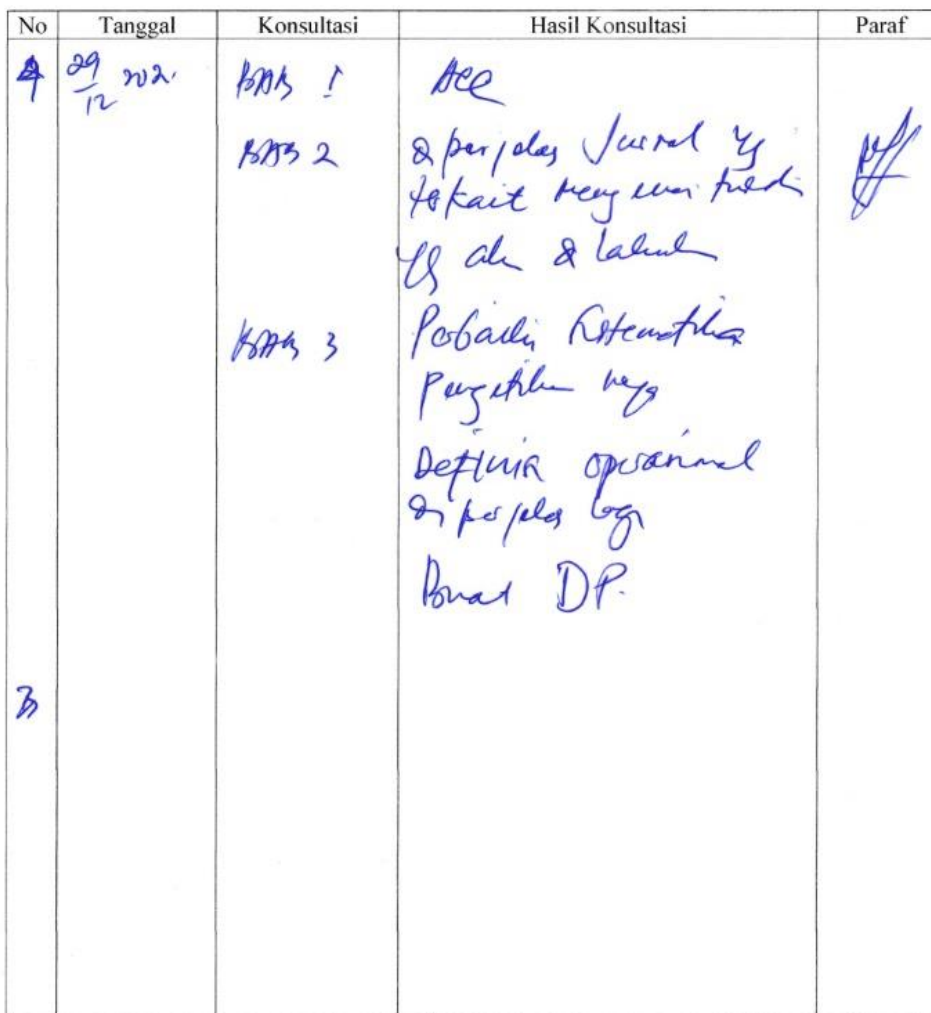 No Tanggal Konsultasi Hasil Konsultasi Paraf
4 29/12 202. BAB I Acc
BAB 2 diperjelas Jurnal yg
terkait mengenai
yg akan di lakukan
BAB 3 Perbaiki Sistematika
Pengetikan nya
Definisi operasional
di perjelas lagi
Buat DP.